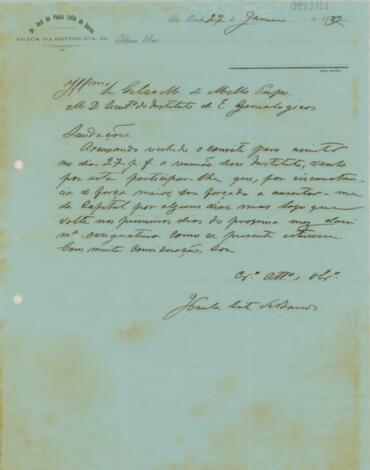 Dr. José de Paula Leite de Barros
PRAÇA DA REPUBLICA, 
São Paulo 27 de Janeiro de 1932
Illmo. Sr. Celso M. de Mello Pupo
M. D. Secretº do Instituto de E. Genealogicos
Saudações.
Accusando recebido o convite para assistir
no dia 27 p. f. a reunião desse Instituto, venho
por esta participar lhe que, por circumstan-
cia de força maior, sou forçado a ausentar-me
da Capital por alguns dias mas logo que
volte nos primeiros dias do proximo mez darei
mª assignatura como se presente estivesse.
Com muita consideração, sou
Crº. Attº. e Obrº.
Paula Leite de Barros